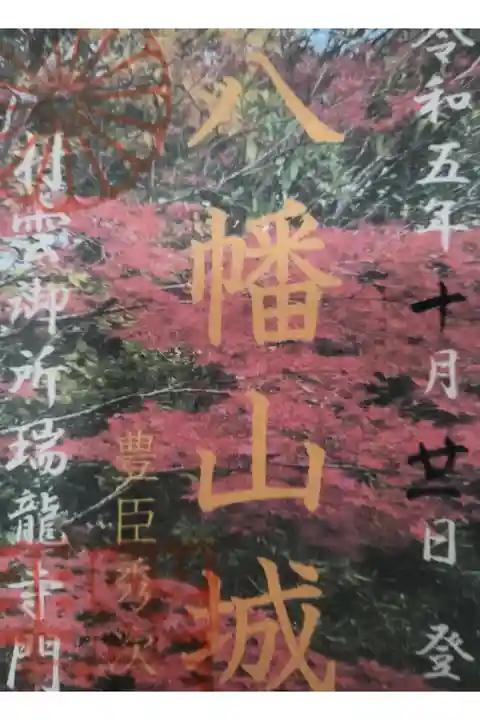 令和五年十月廿二日 登
八幡山城
豊臣秀次
村雲御所瑞龍寺門